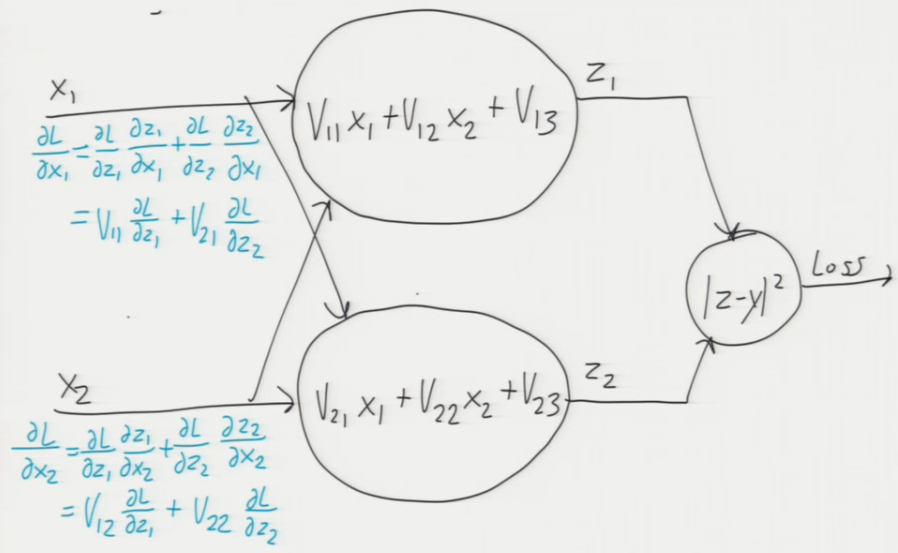 x₁
∂L/∂x₁ = ∂L/∂z₁ ∂z₁/∂x₁ + ∂L/∂z₂ ∂z₂/∂x₁
= V₁₁ ∂L/∂z₁ + V₂₁ ∂L/∂z₂
V₁₁ x₁ + V₁₂ x₂ + V₁₃
z₁
|z-y|²
Loss
x₂
∂L/∂x₂ = ∂L/∂z₁ ∂z₁/∂x₂ + ∂L/∂z₂ ∂z₂/∂x₂
= V₁₂ ∂L/∂z₁ + V₂₂ ∂L/∂z₂
V₂₁ x₁ + V₂₂ x₂ + V₂₃
z₂